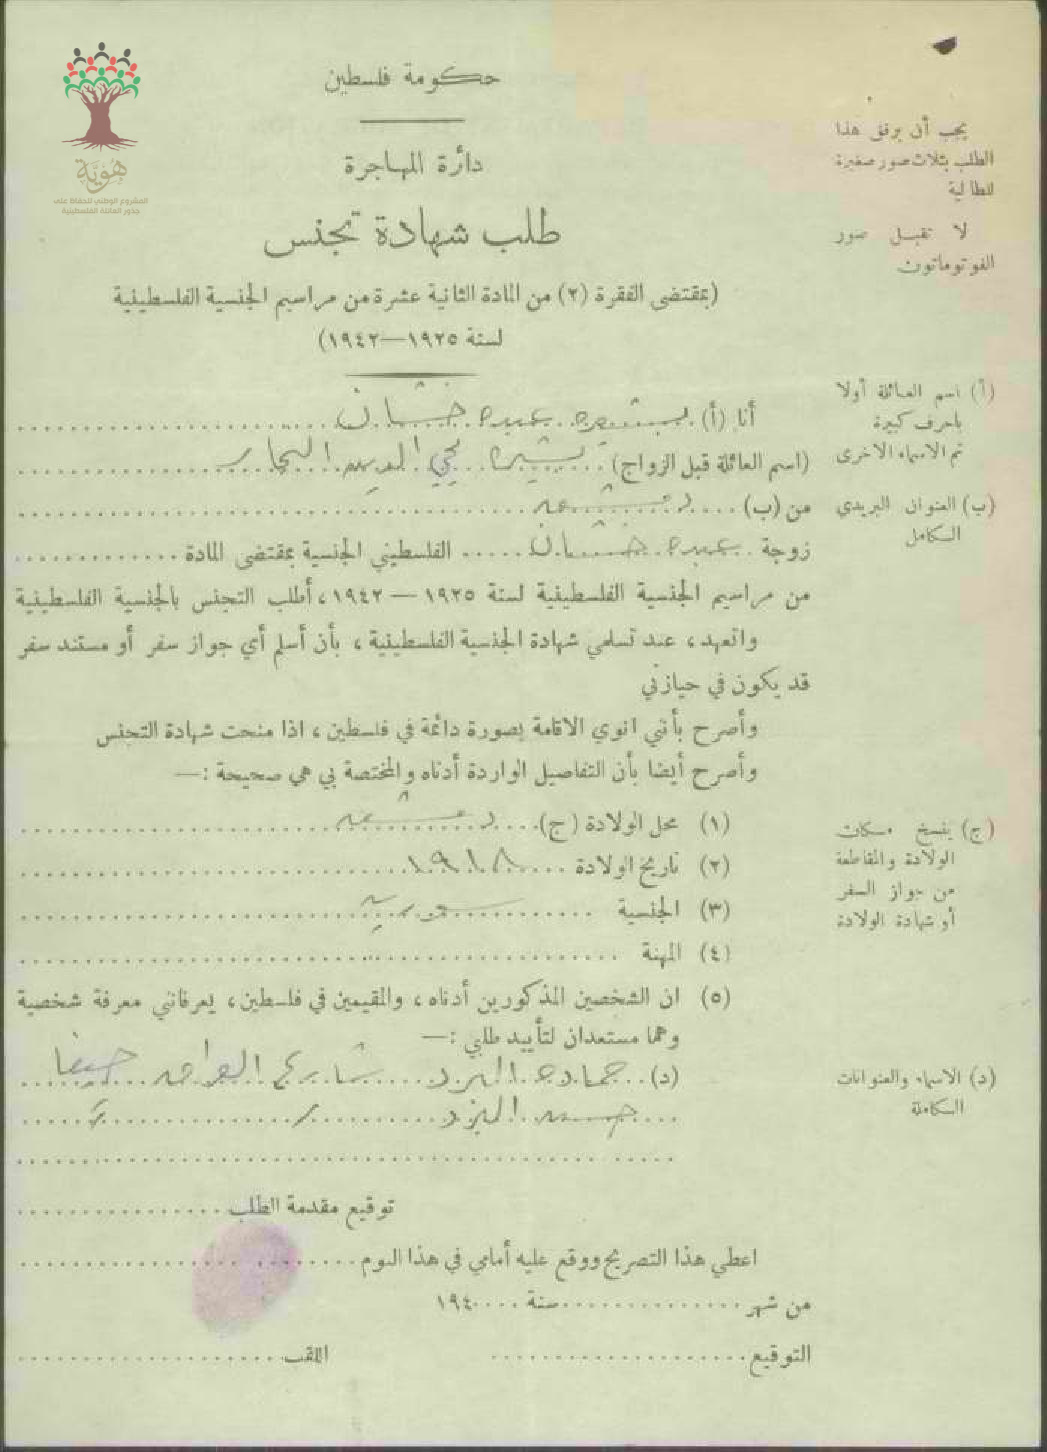 هُوِيَّة
المشروع الوطني للحفاظ على
جذور العائلة الفلسطينية
حكومة فلسطين
دائرة المهاجرة
طلب شهادة تجنس
(بمقتضى الفقرة (٢) من المادة الثانية عشرة من مراسيم الجنسية الفلسطينية
لسنة ١٩٢٥—١٩٤٢)
يجب أن يرفق هذا
الطلب بثلاث صور صغيرة
للطالبة
لا تقبل صور
الفوتوماتون
(أ) اسم العائلة أولا
باحرف كبيرة
ثم الاسماء الاخرى
أنا (أ) بشيره عبده خشان
(اسم العائلة قبل الزواج) بشيره محي الدين النجار
(ب) العنوان البريدي
الكامل
من (ب) دمشق
زوجة عبده خشان الفلسطيني الجنسية بمقتضى المادة
من مراسيم الجنسية الفلسطينية لسنة ١٩٢٥ — ١٩٤٢، أطلب التجنس بالجنسية الفلسطينية
واتعهد، عند تسلمي شهادة الجنسية الفلسطينية، بأن أسلم أي جواز سفر أو مستند سفر
قد يكون في حيازتي
وأصرح بأنني انوي الاقامة بصورة دائمة في فلسطين، اذا منحت شهادة التجنس
وأصرح أيضا بأن التفاصيل الواردة أدناه والمختصة بي هي صحيحة :—
(١) محل الولادة (ج) دمشق
(ج) ينسخ مكان
الولادة والمقاطعة
من جواز السفر
أو شهادة الولادة
(٢) تاريخ الولادة ١٩١٨
(٣) الجنسية سورية
(٤) المهنة
(٥) ان الشخصين المذكورين أدناه، والمقيمين في فلسطين، يعرفانني معرفة شخصية
وهما مستعدان لتأييد طلبي :—
(د) الاسماء والعنوانات
الكاملة
(د) حماده شارع العراق حيفا
حسن
توقيع مقدمة الطلب
اعطي هذا التصريح ووقع عليه أمامي في هذا اليوم
من شهر سنة ١٩٤٠
التوقيع اللقب